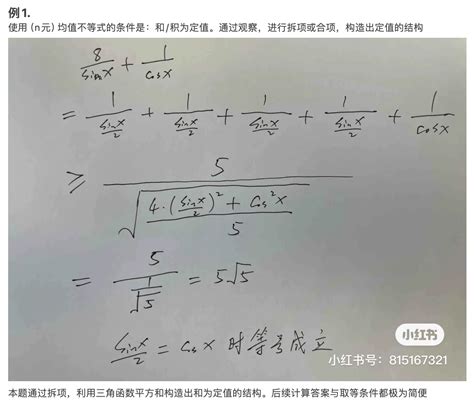 例1.
使用 (n元) 均值不等式的条件是：和/积为定值。通过观察，进行拆项或合项，构造出定值的结构
8/sinx + 1/cosx
= 1/(sinx/2) + 1/(sinx/2) + 1/(sinx/2) + 1/(sinx/2) + 1/cosx
≥ 5/√((4·(sinx/2)² + cos²x)/5)
= 5/(1/√5) = 5√5
sinx/2 = cosx 时等号成立
小红书
小红书号：815167321
本题通过拆项，利用三角函数平方和构造出和为定值的结构。后续计算答案与取等条件都极为简便